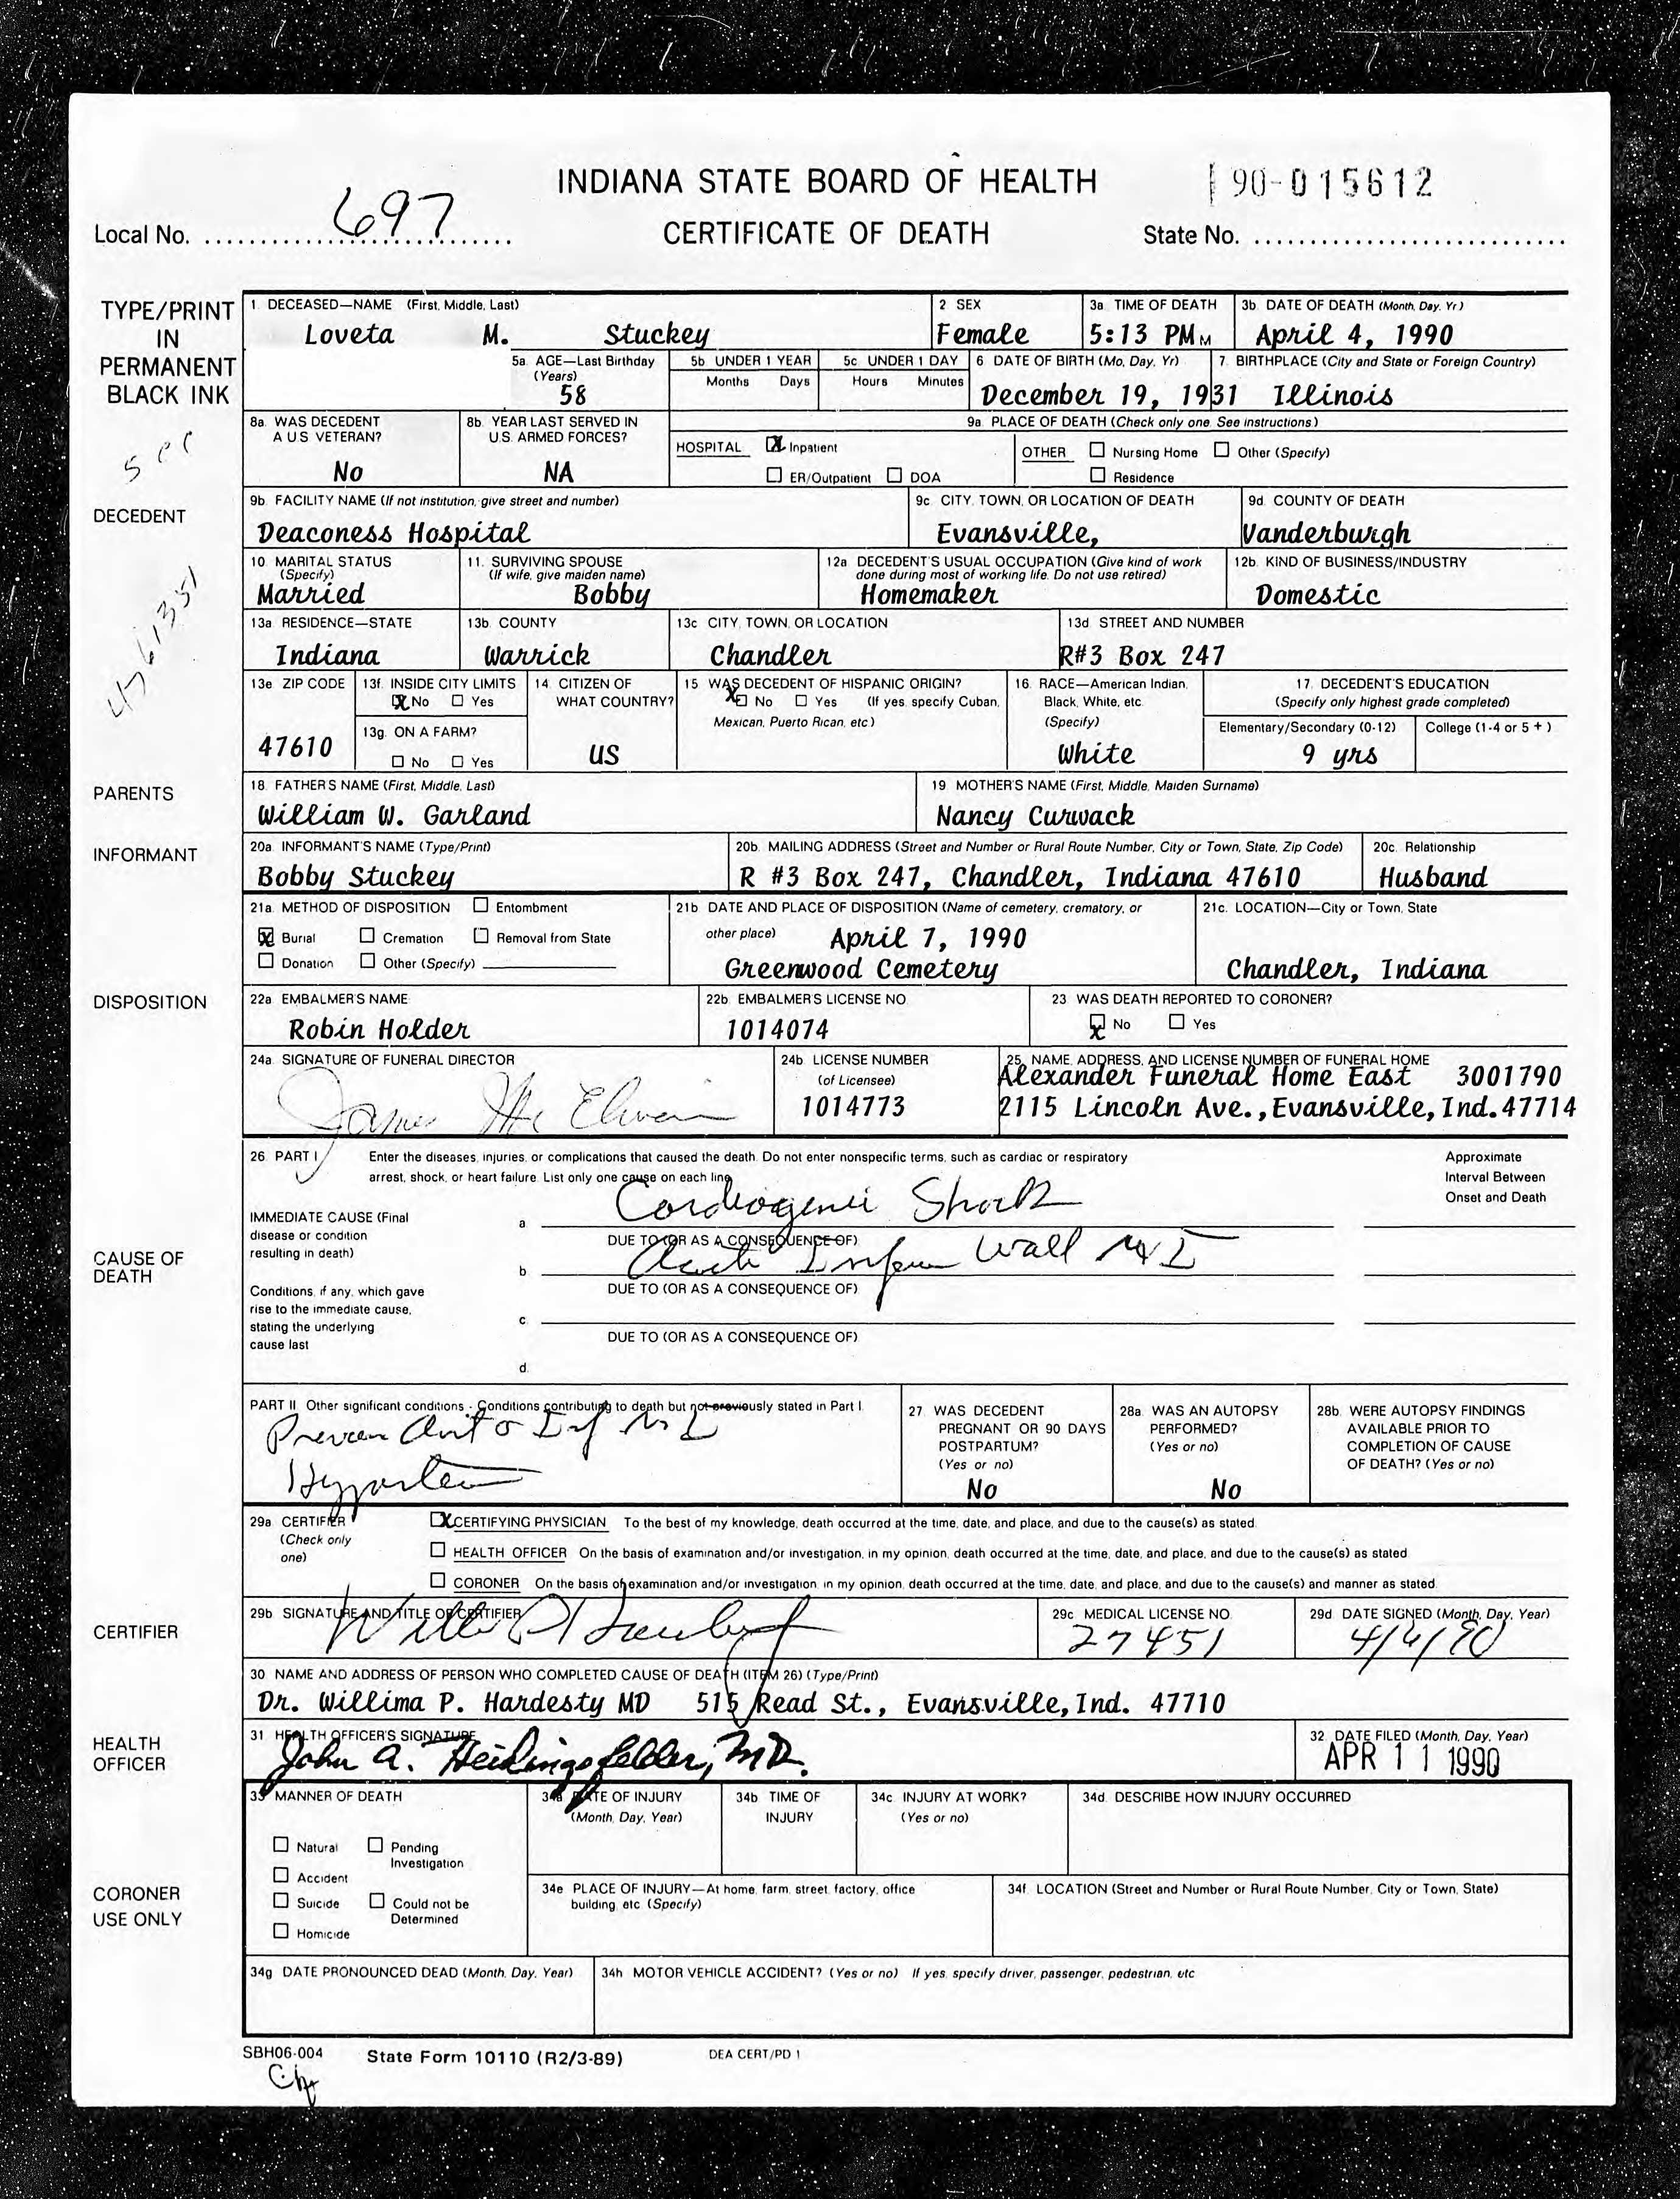 INDIANA STATE BOARD OF HEALTH
90-015612
Local No. 697
CERTIFICATE OF DEATH
State No.
TYPE/PRINT IN PERMANENT BLACK INK
1. DECEASED—NAME (First, Middle, Last)
Loveta M. Stuckey
2 SEX
Female
3a. TIME OF DEATH
5:13 PM M
3b. DATE OF DEATH (Month, Day, Yr.)
April 4, 1990
5a. AGE—Last Birthday (Years)
58
5b. UNDER 1 YEAR
Months Days
5c. UNDER 1 DAY
Hours Minutes
6 DATE OF BIRTH (Mo, Day, Yr)
December 19, 1931
7. BIRTHPLACE (City and State or Foreign Country)
Illinois
DECEDENT
8a. WAS DECEDENT A U.S. VETERAN?
No
8b. YEAR LAST SERVED IN U.S. ARMED FORCES?
NA
9a. PLACE OF DEATH (Check only one. See instructions.)
HOSPITAL X Inpatient
ER/Outpatient DOA
OTHER Nursing Home Other (Specify)
Residence
9b. FACILITY NAME (If not institution, give street and number)
Deaconess Hospital
9c. CITY, TOWN, OR LOCATION OF DEATH
Evansville,
9d. COUNTY OF DEATH
Vanderburgh
10. MARITAL STATUS (Specify)
Married
11. SURVIVING SPOUSE (If wife, give maiden name)
Bobby
12a. DECEDENT'S USUAL OCCUPATION (Give kind of work done during most of working life. Do not use retired)
Homemaker
12b. KIND OF BUSINESS/INDUSTRY
Domestic
13a. RESIDENCE—STATE
Indiana
13b. COUNTY
Warrick
13c. CITY, TOWN, OR LOCATION
Chandler
13d. STREET AND NUMBER
R#3 Box 247
13e. ZIP CODE
47610
13f. INSIDE CITY LIMITS
X No Yes
13g. ON A FARM?
No Yes
14. CITIZEN OF WHAT COUNTRY?
US
15. WAS DECEDENT OF HISPANIC ORIGIN?
X No Yes (If yes, specify Cuban, Mexican, Puerto Rican, etc.)
16. RACE—American Indian, Black, White, etc. (Specify)
White
17. DECEDENT'S EDUCATION (Specify only highest grade completed)
Elementary/Secondary (0-12) College (1-4 or 5 + )
9 yrs
PARENTS
18. FATHER'S NAME (First, Middle, Last)
William W. Garland
19. MOTHER'S NAME (First, Middle, Maiden Surname)
Nancy Curwack
INFORMANT
20a. INFORMANT'S NAME (Type/Print)
Bobby Stuckey
20b. MAILING ADDRESS (Street and Number or Rural Route Number, City or Town, State, Zip Code)
R #3 Box 247, Chandler, Indiana 47610
20c. Relationship
Husband
DISPOSITION
21a. METHOD OF DISPOSITION Entombment
X Burial Cremation Removal from State
Donation Other (Specify)
21b. DATE AND PLACE OF DISPOSITION (Name of cemetery, crematory, or other place)
April 7, 1990
Greenwood Cemetery
21c. LOCATION—City or Town, State
Chandler, Indiana
22a. EMBALMER'S NAME
Robin Holder
22b. EMBALMER'S LICENSE NO.
1014074
23 WAS DEATH REPORTED TO CORONER?
X No Yes
24a. SIGNATURE OF FUNERAL DIRECTOR
James McElwain
24b. LICENSE NUMBER (of Licensee)
1014773
25. NAME, ADDRESS, AND LICENSE NUMBER OF FUNERAL HOME
Alexander Funeral Home East 3001790
2115 Lincoln Ave., Evansville, Ind. 47714
CAUSE OF DEATH
26. PART I Enter the diseases, injuries, or complications that caused the death. Do not enter nonspecific terms, such as cardiac or respiratory
arrest, shock, or heart failure. List only one cause on each line.
Approximate Interval Between Onset and Death
IMMEDIATE CAUSE (Final disease or condition resulting in death)
a. Cardiogenic Shock
DUE TO (OR AS A CONSEQUENCE OF)
b. Acute Inferior Wall MI
DUE TO (OR AS A CONSEQUENCE OF)
Conditions, if any, which gave rise to the immediate cause, stating the underlying cause last
c.
DUE TO (OR AS A CONSEQUENCE OF)
d.
PART II Other significant conditions - Conditions contributing to death but not previously stated in Part I.
Inf MI
Hypertension
27. WAS DECEDENT PREGNANT OR 90 DAYS POSTPARTUM? (Yes or no)
No
28a. WAS AN AUTOPSY PERFORMED? (Yes or no)
No
28b. WERE AUTOPSY FINDINGS AVAILABLE PRIOR TO COMPLETION OF CAUSE OF DEATH? (Yes or no)
CERTIFIER
29a. CERTIFIER (Check only one)
X CERTIFYING PHYSICIAN To the best of my knowledge, death occurred at the time, date, and place, and due to the cause(s) as stated.
HEALTH OFFICER On the basis of examination and/or investigation, in my opinion, death occurred at the time, date, and place, and due to the cause(s) as stated.
CORONER On the basis of examination and/or investigation, in my opinion, death occurred at the time, date, and place, and due to the cause(s) and manner as stated.
29b. SIGNATURE AND TITLE OF CERTIFIER
29c. MEDICAL LICENSE NO.
27451
29d. DATE SIGNED (Month, Day, Year)
4/6/90
30. NAME AND ADDRESS OF PERSON WHO COMPLETED CAUSE OF DEATH (ITEM 26) (Type/Print)
Dr. Willima P. Hardesty MD 515 Read St., Evansville, Ind. 47710
HEALTH OFFICER
31. HEALTH OFFICER'S SIGNATURE
John A. Heidingsfelder, MD.
32. DATE FILED (Month, Day, Year)
APR 11 1990
CORONER USE ONLY
33. MANNER OF DEATH
Natural Pending Investigation
Accident
Suicide Could not be Determined
Homicide
34a. DATE OF INJURY (Month, Day, Year)
34b. TIME OF INJURY
34c. INJURY AT WORK? (Yes or no)
34d. DESCRIBE HOW INJURY OCCURRED
34e. PLACE OF INJURY—At home, farm, street, factory, office building, etc. (Specify)
34f. LOCATION (Street and Number or Rural Route Number, City or Town, State)
34g. DATE PRONOUNCED DEAD (Month, Day, Year)
34h. MOTOR VEHICLE ACCIDENT? (Yes or no) If yes, specify driver, passenger, pedestrian, etc.
SBH06-004 State Form 10110 (R2/3-89) DEA CERT/PD 1